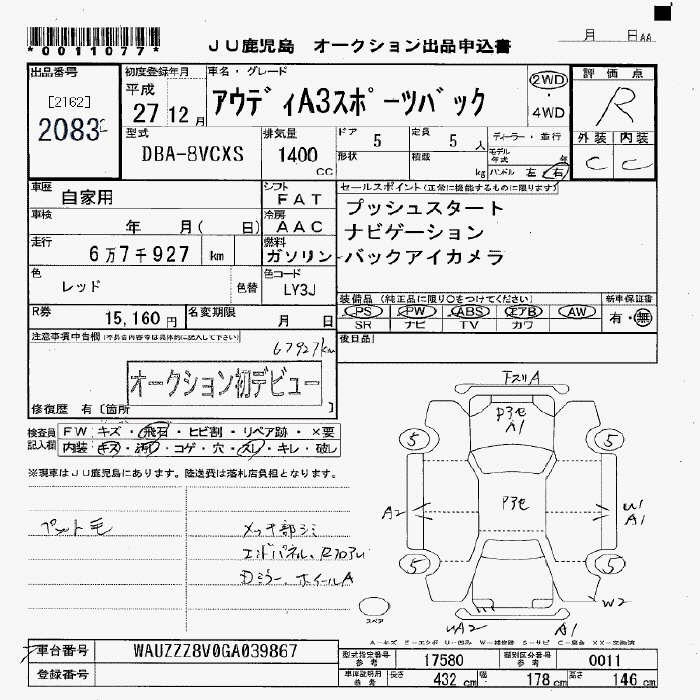 *0011077*
JU鹿児島 オークション出品申込書
月 日AA
出品番号
[2162]
2083
初度登録年月
平成
27 12月
車名・グレード
アウディA3スポーツバック
2WD
・
4WD
評価点
R
外装 内装
C C
型式
DBA-8VCXS
排気量
1400
CC
ドア 5
定員 5 人
形状
積載 kg
ディーラー・並行
モデル年式 年
ハンドル 左・右
車歴
自家用
シフト
FAT
セールスポイント(正常に機能するものに限ります)
プッシュスタート
ナビゲーション
バックアイカメラ
車検
年 月( 日)
冷房
AAC
走行
6万7千927 km
燃料
ガソリン
色
レッド
色替
色コード
LY3J
装備品(純正品に限り○をつけてください)
PS PW ABS エアB AW
SR ナビ TV カワ
新車保証書
有・無
R券
15,160円
名変期限
月 日
後日品
注意事項申告欄(不具合内容等は具体的に記入して下さい)
67927km
オークション初デビュー
修復歴 有〔箇所 〕
検査員記入欄
FW キズ・飛石・ヒビ割・リペア跡・×要
内装 キズ・汚れ・コゲ・穴・スレ・キレ・破レ
※現車はJU鹿児島にあります。陸送費は落札店負担となります。
ペット毛
メッキ部シミ
エンドパネル、Rフロアレ
Dミラー、ホイールA
下スリA
P3セ
A1
5
5
P3セ
A2
W1
A1
5
5
W2
A1
スペア
A-キズ E-エクボ U-凹み W-補修跡 S-サビ C-腐食 XX-交換済
車台番号
WAUZZZ8V0GA039867
登録番号
型式指定番号参考
17580
類別区分番号参考
0011
車庫証明参考
長さ 432 cm
幅 178 cm
高さ 146 cm